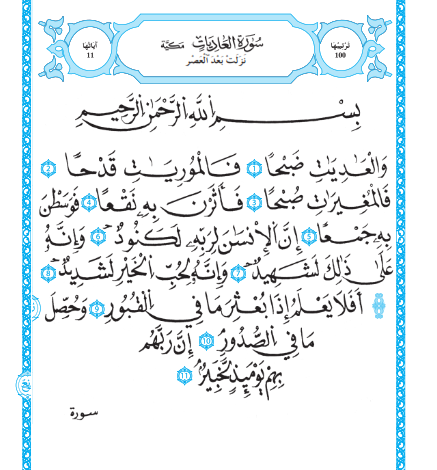 ترتيبها
100
سورة العاديات مكية
نزلت بعد العصر
آياتها
11
بِسْمِ اللَّهِ الرَّحْمَٰنِ الرَّحِيمِ
وَالْعَٰدِيَٰتِ ضَبْحًا 1 فَالْمُورِيَٰتِ قَدْحًا 2
فَالْمُغِيرَٰتِ صُبْحًا 3 فَأَثَرْنَ بِهِ نَقْعًا 4 فَوَسَطْنَ
بِهِ جَمْعًا 5 إِنَّ الْإِنسَٰنَ لِرَبِّهِ لَكَنُودٌ 6 وَإِنَّهُ
عَلَىٰ ذَٰلِكَ لَشَهِيدٌ 7 وَإِنَّهُ لِحُبِّ الْخَيْرِ لَشَدِيدٌ 8
أَفَلَا يَعْلَمُ إِذَا بُعْثِرَ مَا فِي الْقُبُورِ 9 وَحُصِّلَ
مَا فِي الصُّدُورِ 10 إِنَّ رَبَّهُم
بِهِمْ يَوْمَئِذٍ لَّخَبِيرٌ 11
سورة